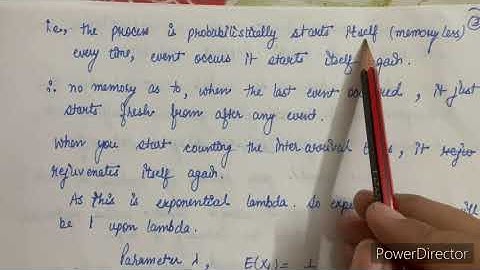 i.e., the process is probabilistically starts itself (memoryless)
every time, event occurs it starts itself again.
∴ no memory as to, when the last event , it just
starts fresh from after any event.
When you start counting the inter arrival , it
rejuvenates itself again.
As this is exponential lambda. So
be 1 upon lambda.
Parameter λ, E(X₁) = 1
PowerDirector